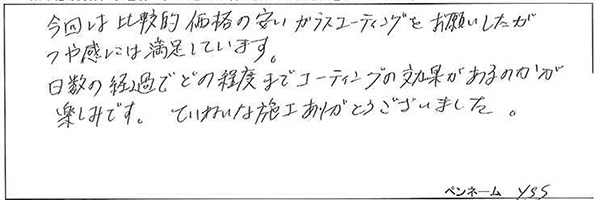 今回は比較的価格の安いガラスコーティングをお願いしたが
つや感には満足しています。
日数の経過でどの程度までコーティングの効果があるのかが
楽しみです。ていねいな施工ありがとうございました。
ペンネーム yss